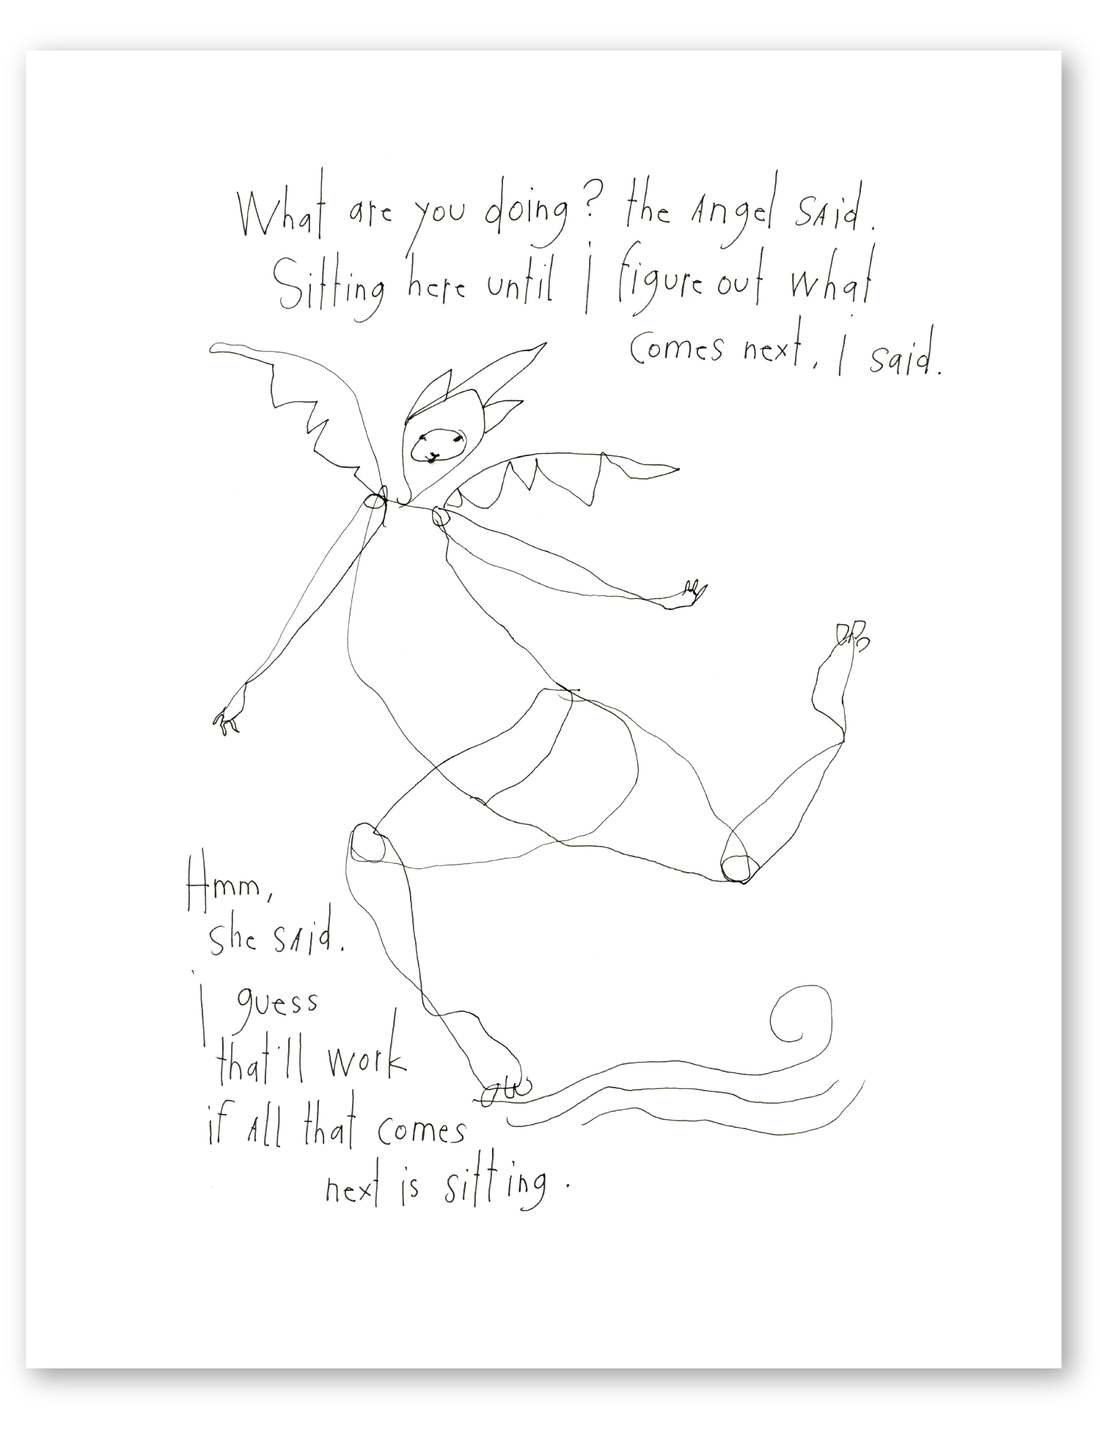 What are you doing? the Angel said.
Sitting here until I figure out what
comes next, I said.
Hmm,
she said.
I guess
that'll work
if all that comes
next is sitting.